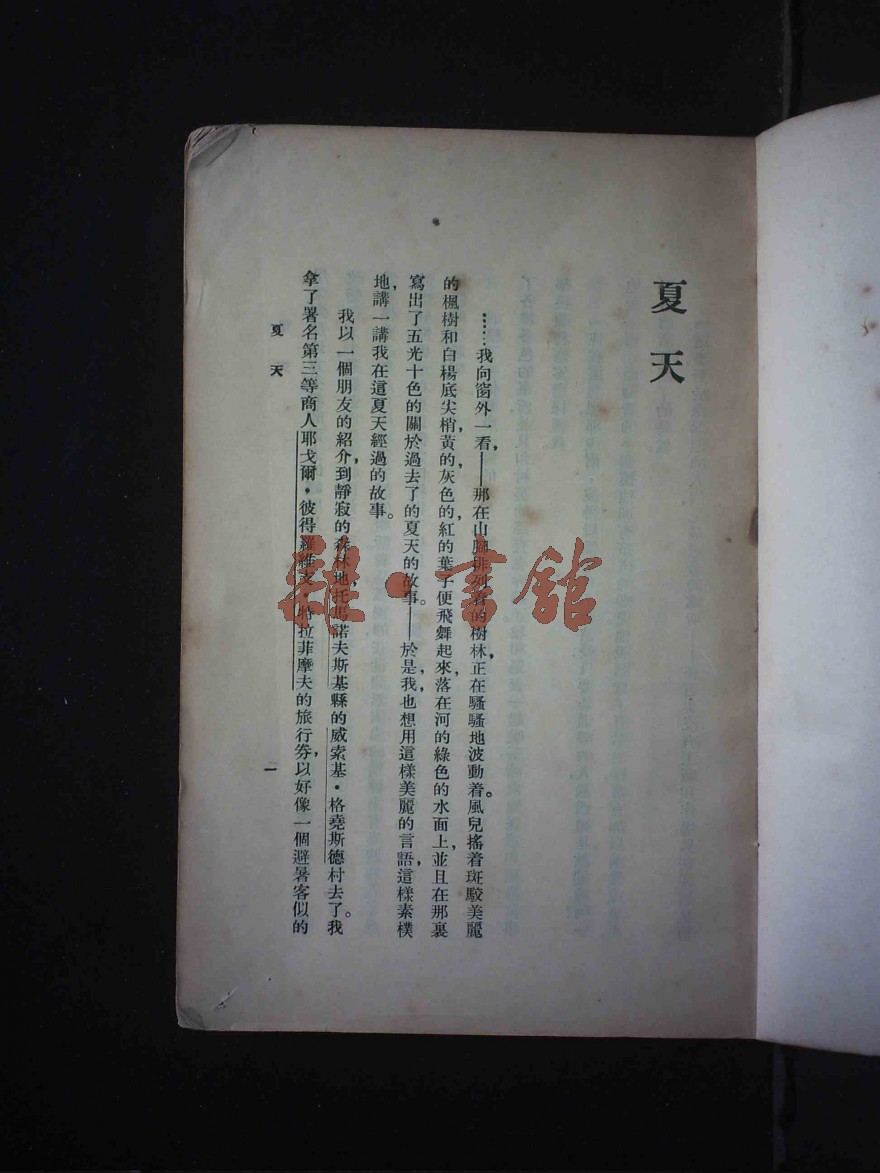 夏天
……我向窗外一看,——那在山脚排列着的樹林,正在騷騷地波動着。風兒搖着斑駮美麗
的楓樹和白楊底尖梢,黃的,灰色的,紅的葉子便飛舞起來,落在河的綠色的水面上,並且在那裏
寫出了五光十色的關於過去了的夏天的故事。——於是,我也想用這樣美麗的言語,這樣素樸
地,講一講我在這夏天經過的故事。
我以一個朋友的紹介,到靜寂的森林地,托馬諾夫斯基縣的威索基·格堯斯德村去了。我
拿了署名第三等商人耶戈爾·彼得羅維支·特拉菲摩夫的旅行券,以好像一個避暑客似的
夏天
一
雜·書館